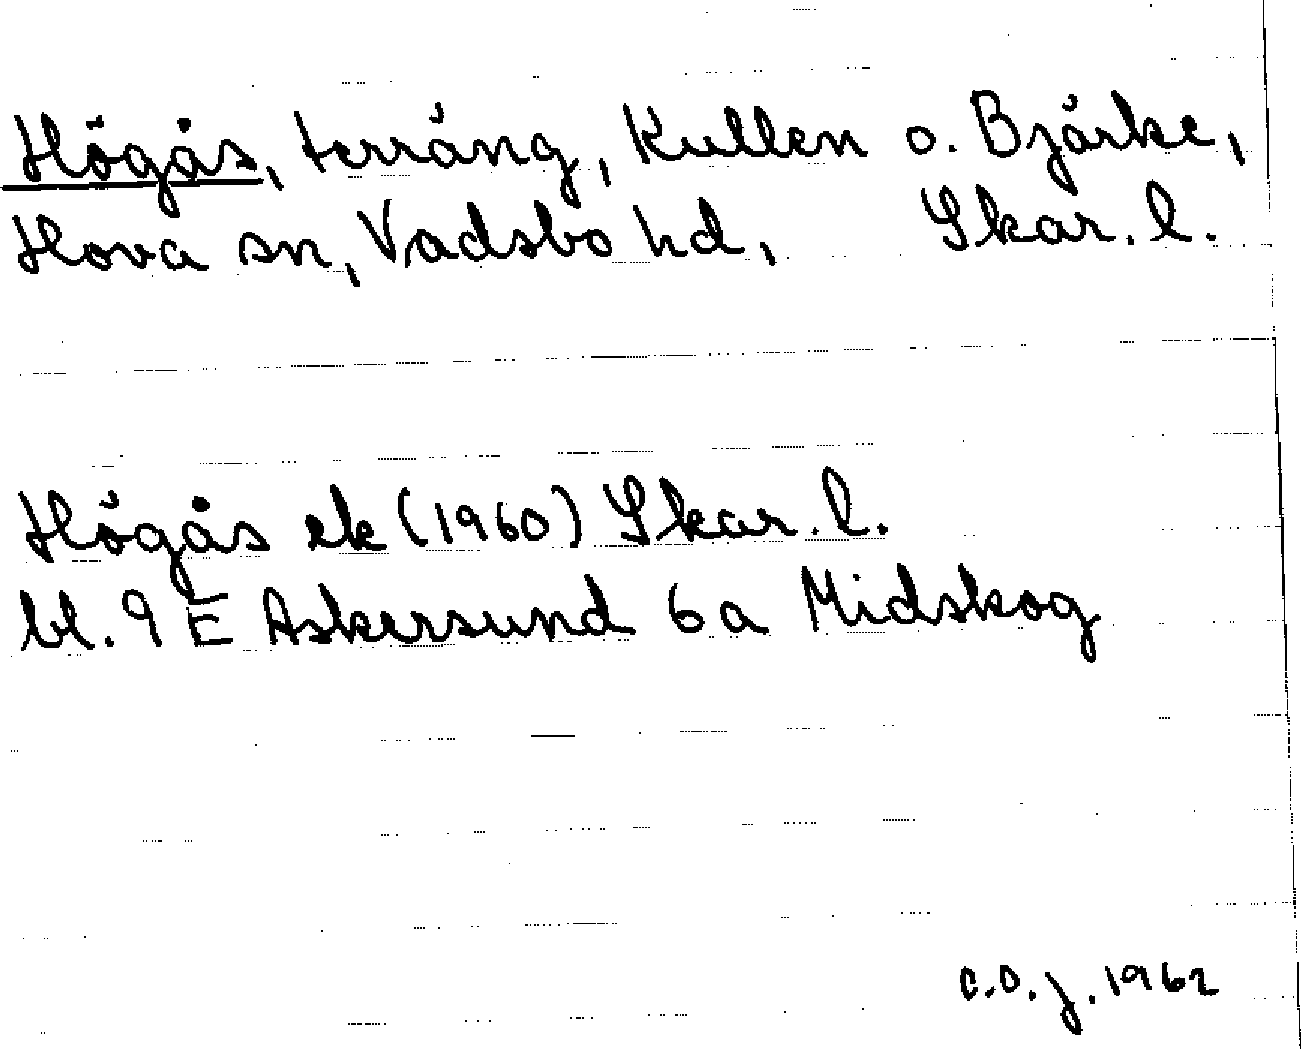 Högås, terräng, Kullen o. Bjärke,
Hova sn, Vadsbo hd, Skar. l.
Högås ek (1960) Skar. l.
bl. 9 E Askersund 6a Midskog
C.O.J. 1962